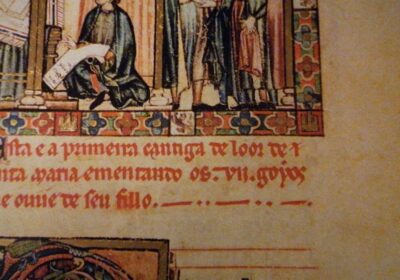 sta e a primeira cantiga de loor de
Maria ementando os. vii. goyos
e ouue de seu fillo.